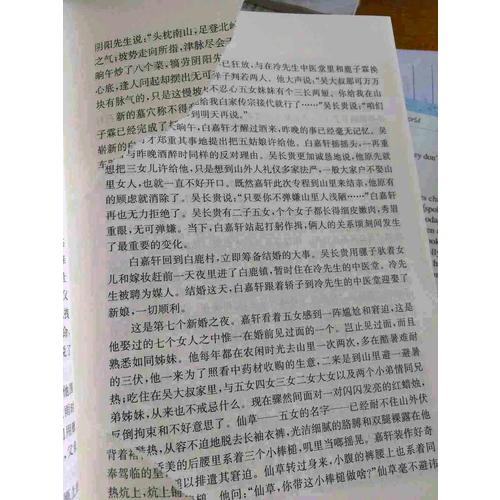 阴阳先生说:"头枕南山,足登北
之气;坡势走向所指,津脉尽会
晌午炒了八个菜,犒劳阴阳先生
心底,逢人问起却摆出无可
块有脉气的,只是这慢坡
三新的墓穴称不得
子霖已经完成了
崭新的
车
已狂放,与在冷先生中医堂里和鹿子霖换
羊子判若两人。他大声说:"吴大叔那可万万
不忍心五女妹妹有个三长两短。你给我
给我白家传宗接代就行了……"吴长贵说:"咱们
到明天再说。"
晌午,白嘉轩才醒过酒来,昨晚的事已经毫无记忆。吴
才郑重其事地提出把五姑娘许给他。白嘉轩摇摇头,一再重
与昨晚酒醉时同样的反对理由。吴长贵更加诚恳地说,他原先就
想把三女儿许给他,只是想到山外人礼仪多家法严,一般大家户不娶山
里女人,也就一直不好开口。既然嘉轩此次专程到山里来结亲,他原有
的顾虑就消除了。吴长贵说:"只要你不弹嫌山里人浅陋……"白嘉轩
再也无力拒绝了。吴长贵有二子五女,个个女子都长得细皮嫩肉,秀眉
重眼,无可弹嫌。当下,白嘉轩站起打躬作揖,俩人的关系顷刻间发生
了最重要的变化。
白嘉轩回到白鹿村,立即筹备结婚的大事。吴长贵用骡子驮着女
儿和嫁妆赶前一天夜里进了白鹿镇,暂时住在冷先生的中医堂。冷先
生被聘为媒人。结婚这天,白嘉轩跟着轿子到冷先生的中医堂迎娶了
新娘,一切顺利。
这是第七个新婚之夜。嘉轩看着五女感到一阵尴尬和窘迫,这是
他娶过的七个女人之中惟一在婚前见过面的一个。岂止见过面,而且
熟悉如同姊妹。他每年都在农闲时光去山里一次两次,多在酷暑难耐
的三伏,他一来为了照看中药材收购的生意,二来是到山里避一避暑
热;吃住在吴大叔家里,与五女四女三女二女大女以及两个小弟情同兄
弟姊妹,从来也不戒忌什么。现在骤然间面对一对闪闪发亮的红蜡烛,
反倒拘束和不好意思了。仙草——五女的名字——已经耐不住山外伏
热,从容不迫地脱去长袖衣裤,光洁细腻的胳膊和双腿裸露在他
娇美的后腰里系着三个小棒槌,叽里当啷摇晃。嘉轩装作好奇
以排遣其窘迫。仙草转过身来,小腹的裤腰上也系着同
他问:"仙草,你带这小棒槌做啥?"仙草毫不遮讳
背着
奉驾临的
热炕上,炕上